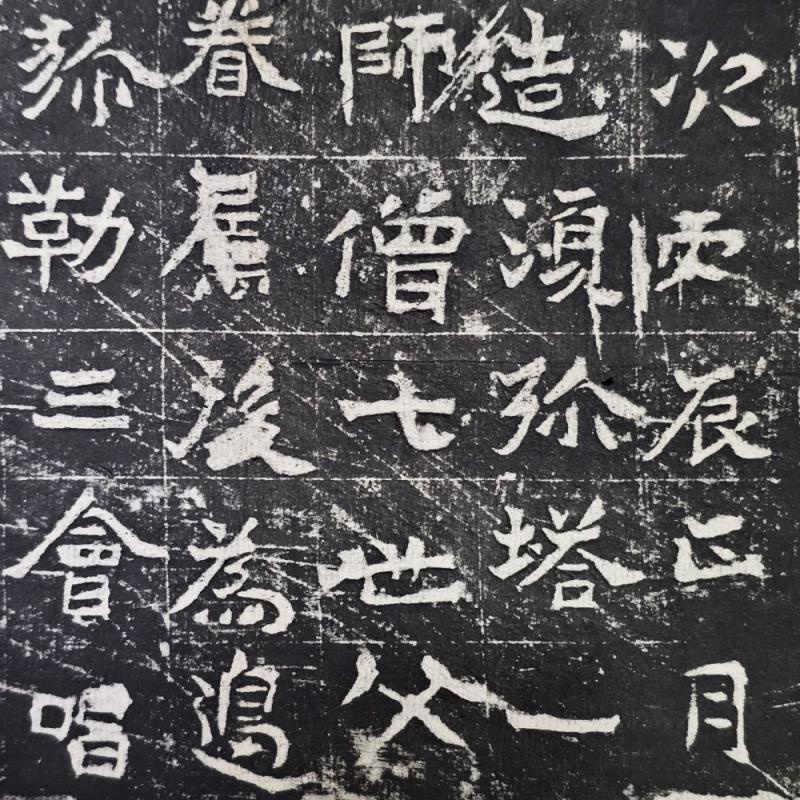 次丙辰正月
造須弥塔一
師僧七世父
眷屬為
弥勒三會唱